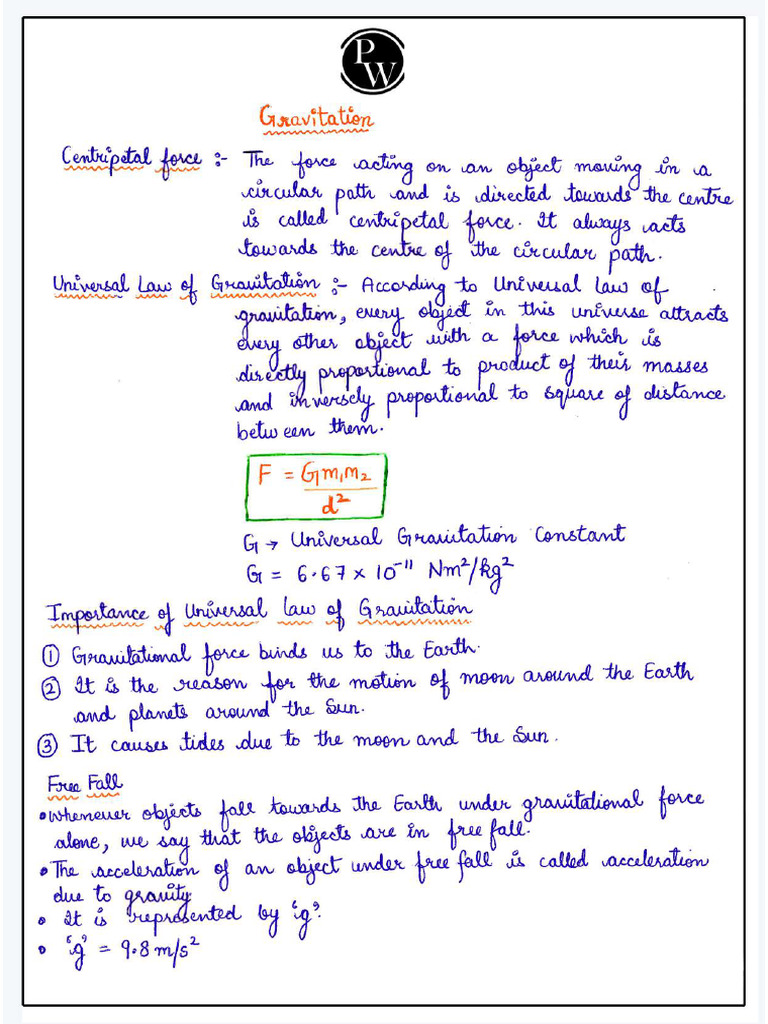 PW
Gravitation
Centripetal force :- The force acting on an object moving in a
circular path and is directed towards the centre
is called centripetal force. It always acts
towards the centre of the circular path.
Universal Law of Gravitation :- According to Universal law of
gravitation, every object in this universe attracts
every other object with a force which is
directly proportional to product of their masses
and inversely proportional to square of distance
between them.
F = Gm₁m₂
d²
G → Universal Gravitation Constant
G = 6.67 × 10⁻¹¹ Nm²/kg²
Importance of Universal Law of Gravitation
① Gravitational force binds us to the Earth.
② It is the reason for the motion of moon around the Earth
and planets around the Sun.
③ It causes tides due to the moon and the Sun.
Free Fall
• Whenever objects fall towards the Earth under gravitational force
alone, we say that the objects are in free fall.
• The acceleration of an object under free fall is called acceleration
due to gravity
• It is represented by 'g'.
• 'g' = 9.8 m/s²